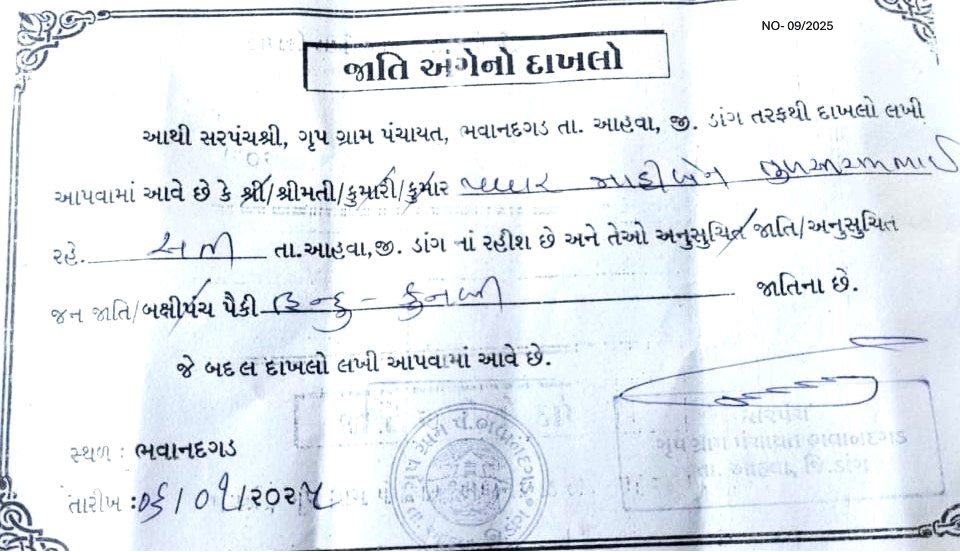 NO- 09/2025
જાતિ અંગેનો દાખલો
આથી સરપંચશ્રી, ગૃપ ગ્રામ પંચાયત, ભવાનદગડ તા. આહવા, જી. ડાંગ તરફથી દાખલો લખી
આપવામાં આવે છે કે શ્રી/શ્રીમતી/કુમારી/કુમાર પવાર
રહે. તા.આહવા,જી. ડાંગ નાં રહીશ છે અને તેઓ અનુસુચિત જાતિ/અનુસુચિત
જન જાતિ/બક્ષીપંચ પૈકી હિન્દુ - કુનબી જાતિના છે.
જે બદલ દાખલો લખી આપવામાં આવે છે.
સરપંચ
ગૃપ ગ્રામ પંચાયત ભવાનદગડ
તા. આહવા, જિ.ડાંગ
સ્થળ : ભવાનદગડ
તારીખ :૦૬/૦૧/૨૦૨૫